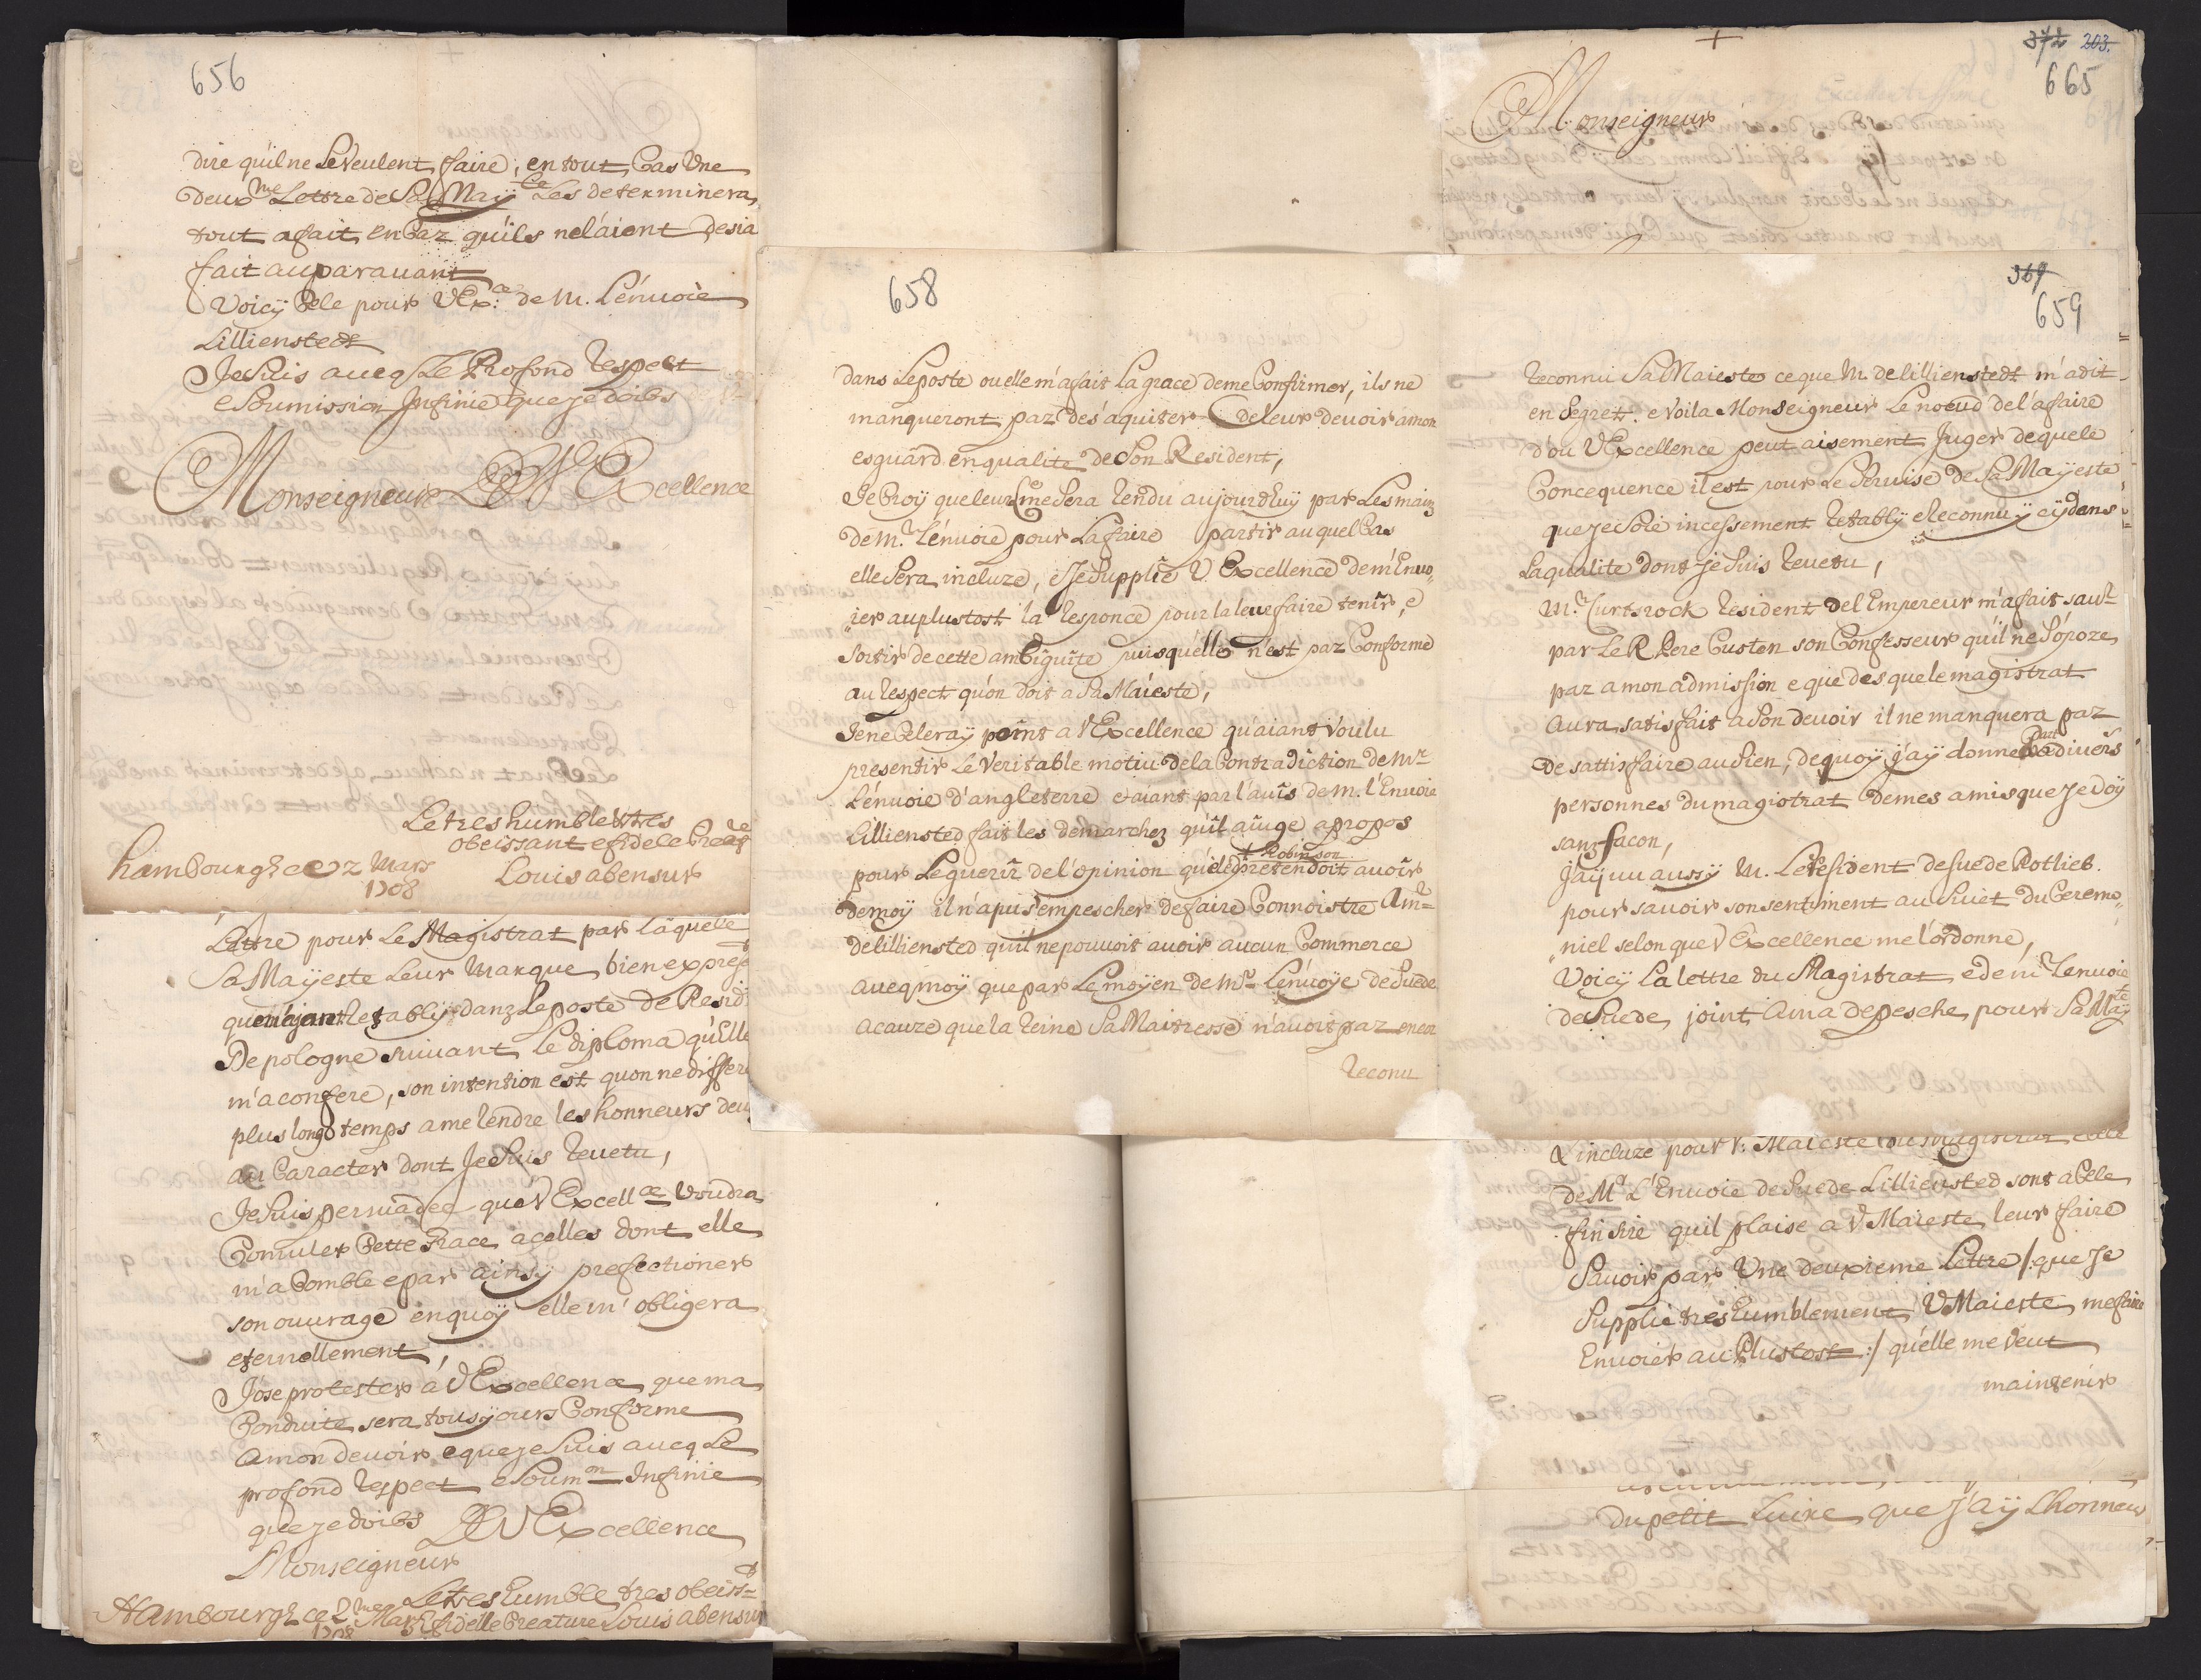 656
dire quil ne Le Veulent faire, en tout Cas Vne
Deuxme Lettre de Sa Maÿ.te Les determinera,
tout afait en Caz qu'ils nel'aient Desia
fait auparauant
Voicÿ Cele pour VEx.ce de M. L'enuoie
Lillienstedt
Je Suis aueq Le Profond Respect
e Soumission Jnfinie que je doibs
Monseigneur De V Excellence
Le tres humble tres
obeissant e fidele Creat.re
hambourgh ce 2 Mars
1708
Louis abensur
Lettre pour Le Magistrat par Laquelle
Sa Maÿeste Leur Marque bien
que m'aÿant Retablÿ danz Le poste de Resid
De pologne suiuant Le diploma qu'Elle
m'a confere, son intention est quon ne differe
plus long temps a me Rendre les honneurs deu
au Caracter dont Je Suis Reuetu,
Je Suis persuadee que V Excell.ce Voudra
Comuler Cette Grace a celles dont elle
m'a Comble e par ainsÿ prefectioner
son ouurage en quoÿ elle m'obligera
eternellement,
J'ose protester a V Excellence que ma
Conduite sera tousjours Conforme
a mon deuoir e que je Suis aueq Le
profond Respect e Soum.on Jnfinie
que je doibs De V Excellence
Monseigneur
Le tres humble tres obeiss.t
Hambourgh ce 2.me Mars e fidelle Creature Louis abensur
1708
658
dans Le poste ou elle m'a fait La grace de me Confirmer, ils ne
manqueront paz de s'aquiter de leur deuoir a mon
esguard en qualite de Son Resident,
Je Croÿ que leur Sera Rendu aujourdhuÿ par Les mainz
de M.r L'enuoie pour La faire partir au quel Cas
elle Sera incluze, e Je Supplie V. Excellence de m'Enuo
ier au plustost la Responce pour la leur faire tenir, e
Sortir de cette ambiguite puisqu'elle n'est paz Conforme
au Respect qu'on doit a Sa Maieste,
Je ne Celeraÿ point a V Excellence qu'aiant Voulu
presentir Le Veritable motiu de la Contradiction de Mr
L'enuoie d'angleterre e aiant par l'auis de M. l'Enuoie
Lilliensted fait les demarchez qu'il a iuge apropos
+ Robinson
pour Le guerir de l'opinion qu'il pretendoit auoir
de moÿ il n'a pu s'empescher de faire Connoistre a Mr
de lilliensted quil ne pouuoit auoir aucun Commerce
aueq moÿ que par Le moÿen de Mr L'enuoÿe de Suede
a cauze que la Reine Sa Maitresse n'auoit paz encor
Reconu
369
659
Reconnu Sa Maieste ce que M. de lillienstedt m'a dit
en Segrett. e Voila Monseigneur Le noeud de l'afaire
d'ou V Excellence peut aisement Juger de quele
Concequence il est pour Le Seruise de Sa Maÿeste
que je Soie incessement Retablÿ e Reconnu ÿ cy dans
La qualite dont je Suis Reuetu,
M.r Curtsrock Resident de l Empereur m'a fait sauoir
par Le R Pere Custen son Confesseur qu'il ne S'opoze
paz a mon admission e que des que le magistrat
aura satisfait a Son deuoir il ne manquera paz
De sattisfaire au Sien, de quoÿ j'aÿ donne Part a diuers
personnes du magistrat de mes amis que je Voÿ
sanz facon,
J'aÿ vu aussÿ M. Le Resident de Suede Rotlieb.
pour sauoir son sentiment au Suiet du Ceremo
niel selon que V Excellence me l'ordonne,
Voicÿ La lettre du Magistrat e de Mr L'enuoie
de Suede joint a ma depesche pour Sa Maÿ.te
372 203.
665
Monseigneur
incluze pour V. Maieste du Magistrat
De M.r L'Enuoie de Suede Lilliensted sont a Cele
fin Sire quil plaise a V Maieste leur faire
Sauoir par Vne deuxieme Lettre /: que Je
Supplie tres humblement V Maieste me faire
Enuoier au Plustost :/ qu'elle me Veut
maintenir
du petit Luire que J'aÿ Lhonneur